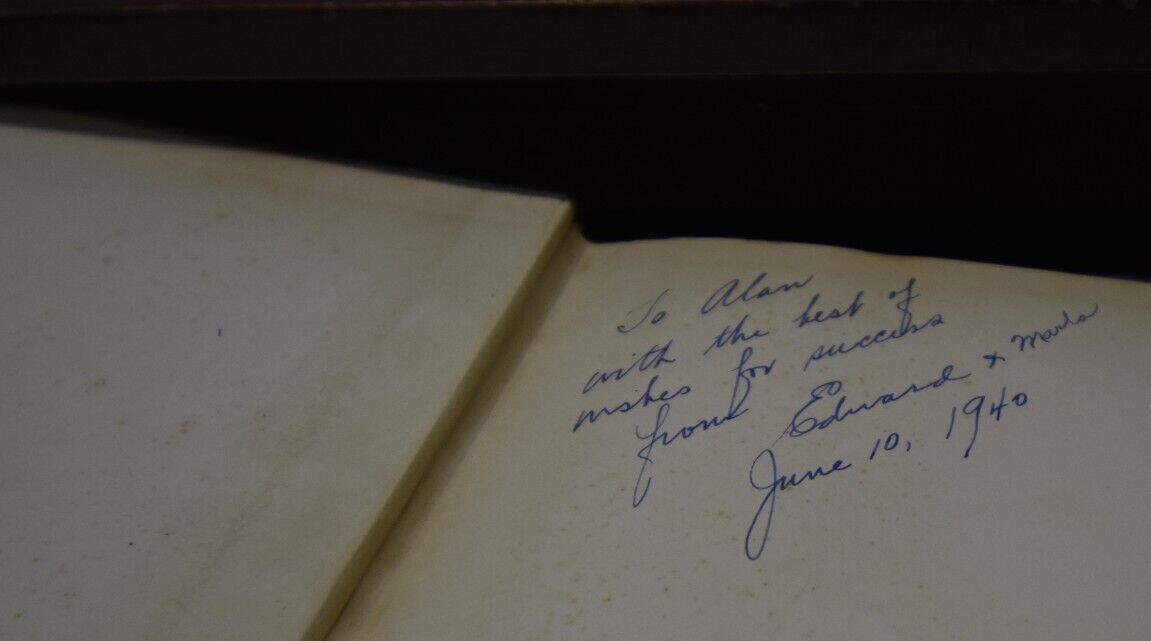 To Alan
with the best of
wishes for success
from Edward & Marla
June 10, 1940